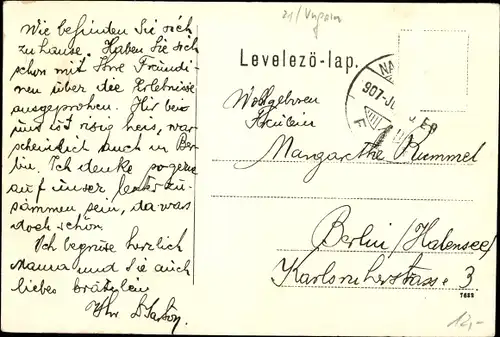 21/Ungarn
Wie befinden Sie sich
zu hause. Haben Sie sich
schon mit Ihre Freundi-
nen über die Erlebnisse
ausgeprohen. Hir bei
uns ist risig heis, war
scheinlich auch in Ber
lin. Ich denke so gerne
auf unser letzt zu-
sammen sein, da was
doch schön.
Ich begrüse herzlich
Mama und Sie auch
liebes
Ihr
Levelező-lap.
907
Wohlgeboren
Fräulein
Margarethe Rummel
Berlin (Halensee)
Karlsruherstrasse 3
7682
12,-